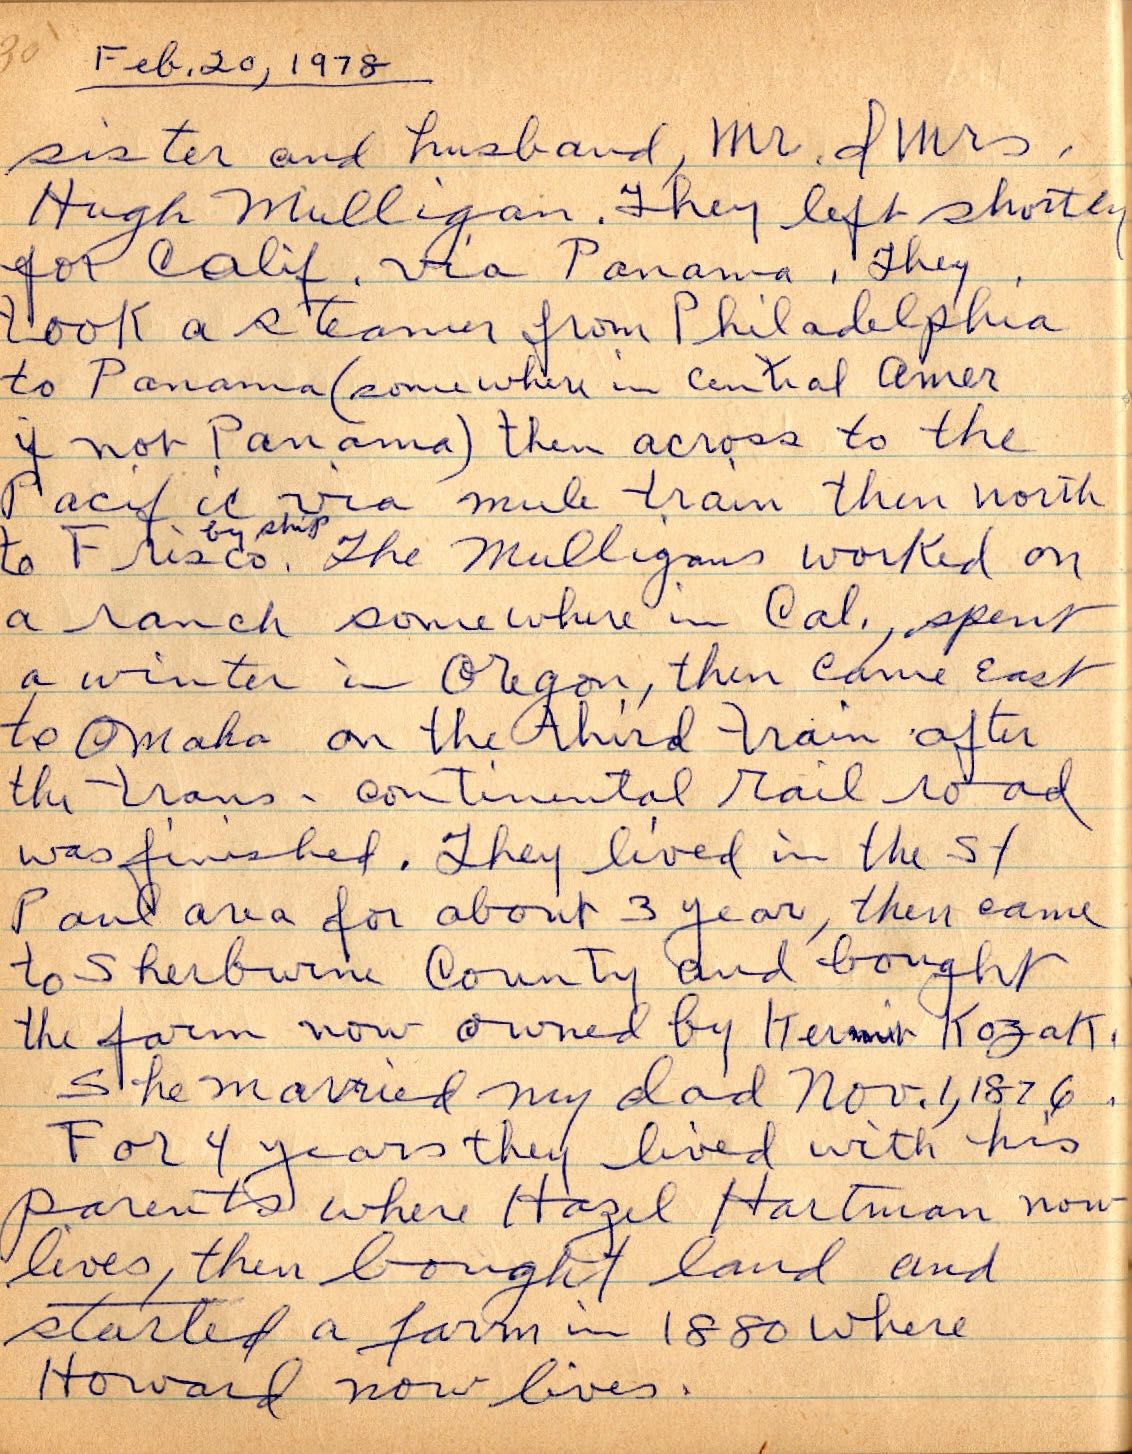 30
Feb. 20, 1978
sister and husband, Mr. & Mrs.
Hugh Mulligan. They left shortly
for Calif. via Panama. They
took a steamer from Philadelphia
to Panama (somewhere in central Amer
if not Panama) then across to the
Pacific via mule train then north
by ship
to Frisco. The Mulligans worked on
a ranch somewhere in Cal., spent
a winter in Oregon, then came East
to Omaha on the third train after
the trans-continental rail road
was finished. They lived in the St
Paul area for about 3 year, then came
to Sherburne County and bought
the farm now owned by Kermit Kozak.
She married my dad Nov. 1, 1876.
For 4 years they lived with his
parents where Hazel Hartman now
lives, then bought land and
started a farm in 1880 where
Howard now lives.